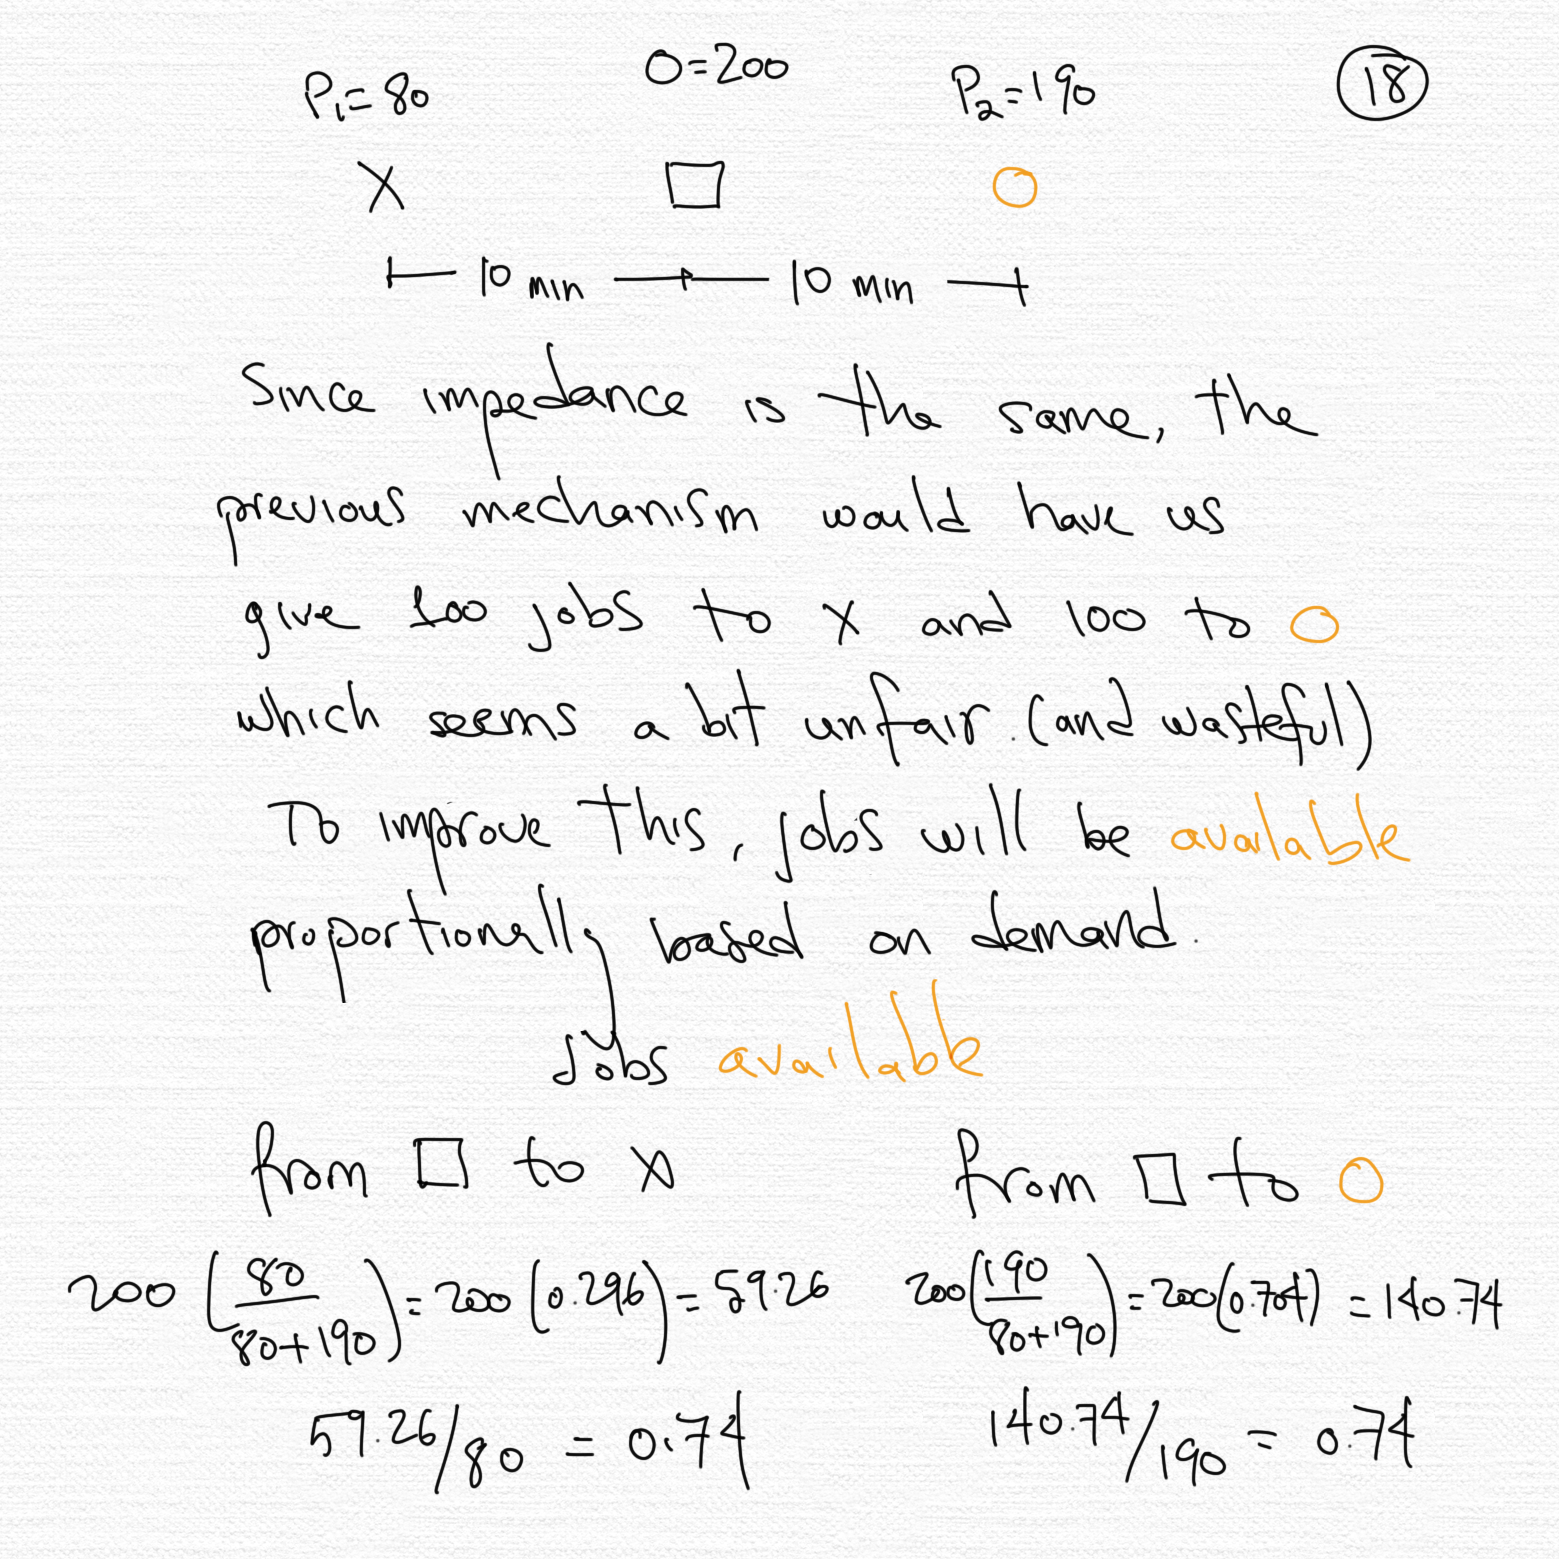 P₁=80 O=200 P₂=190 18
X □ O
10 min 10 min
Since impedance is the same, the
previous mechanism would have us
give 100 jobs to X and 100 to O
which seems a bit unfair. (and wasteful)
To improve this, jobs will be available
proportionally based on demand.
Jobs available
from □ to X from □ to O
200 (80/(80+190)) = 200 (0.296) = 59.26 200 (190/(80+190)) = 200 (0.704) = 140.74
59.26/80 = 0.74 140.74/190 = 0.74